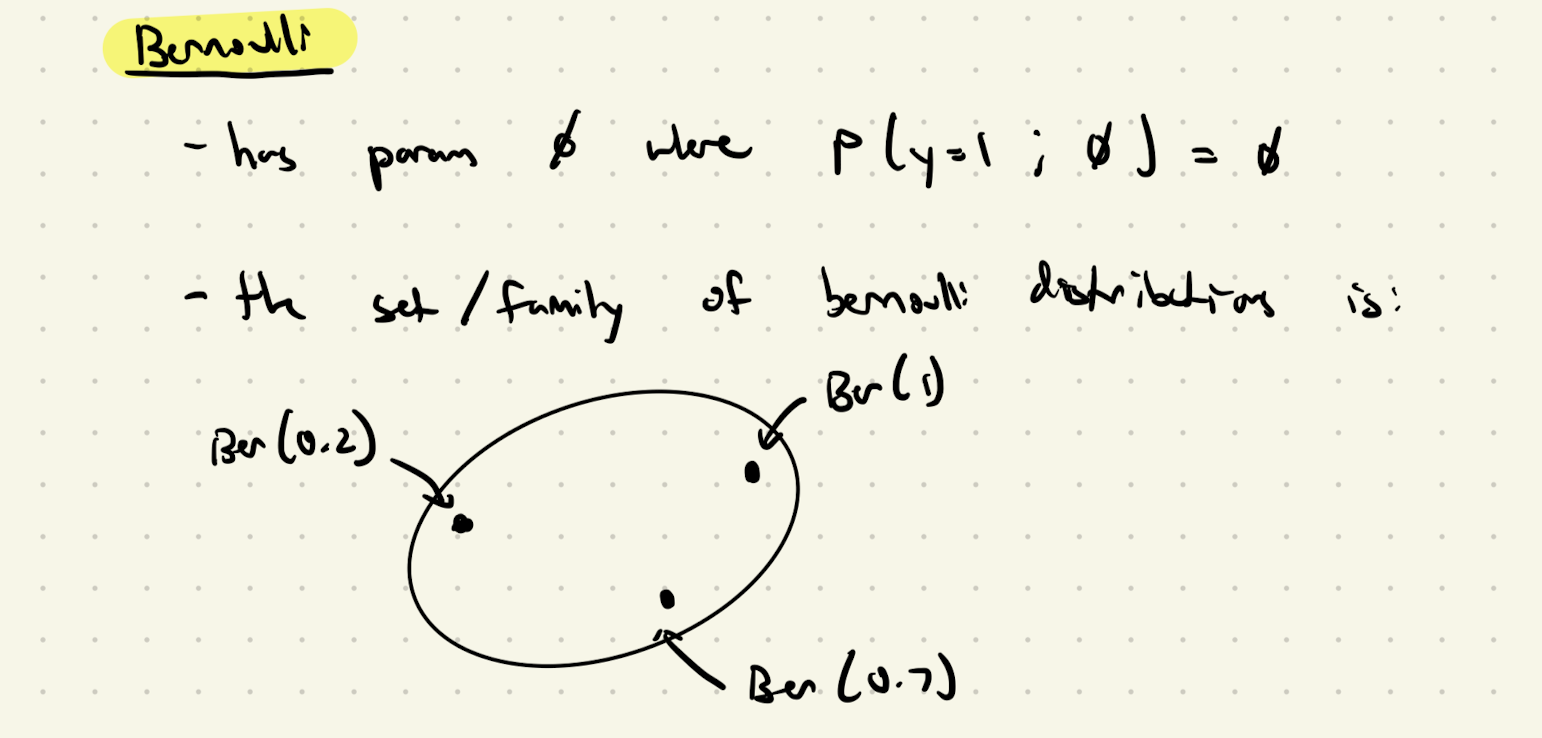 Bernoulli
- has param ϕ where P(y=1 ; ϕ) = ϕ
- the set/family of bernoulli distributions is:
Ber(1)
Ber(0.2)
Ber(0.7)